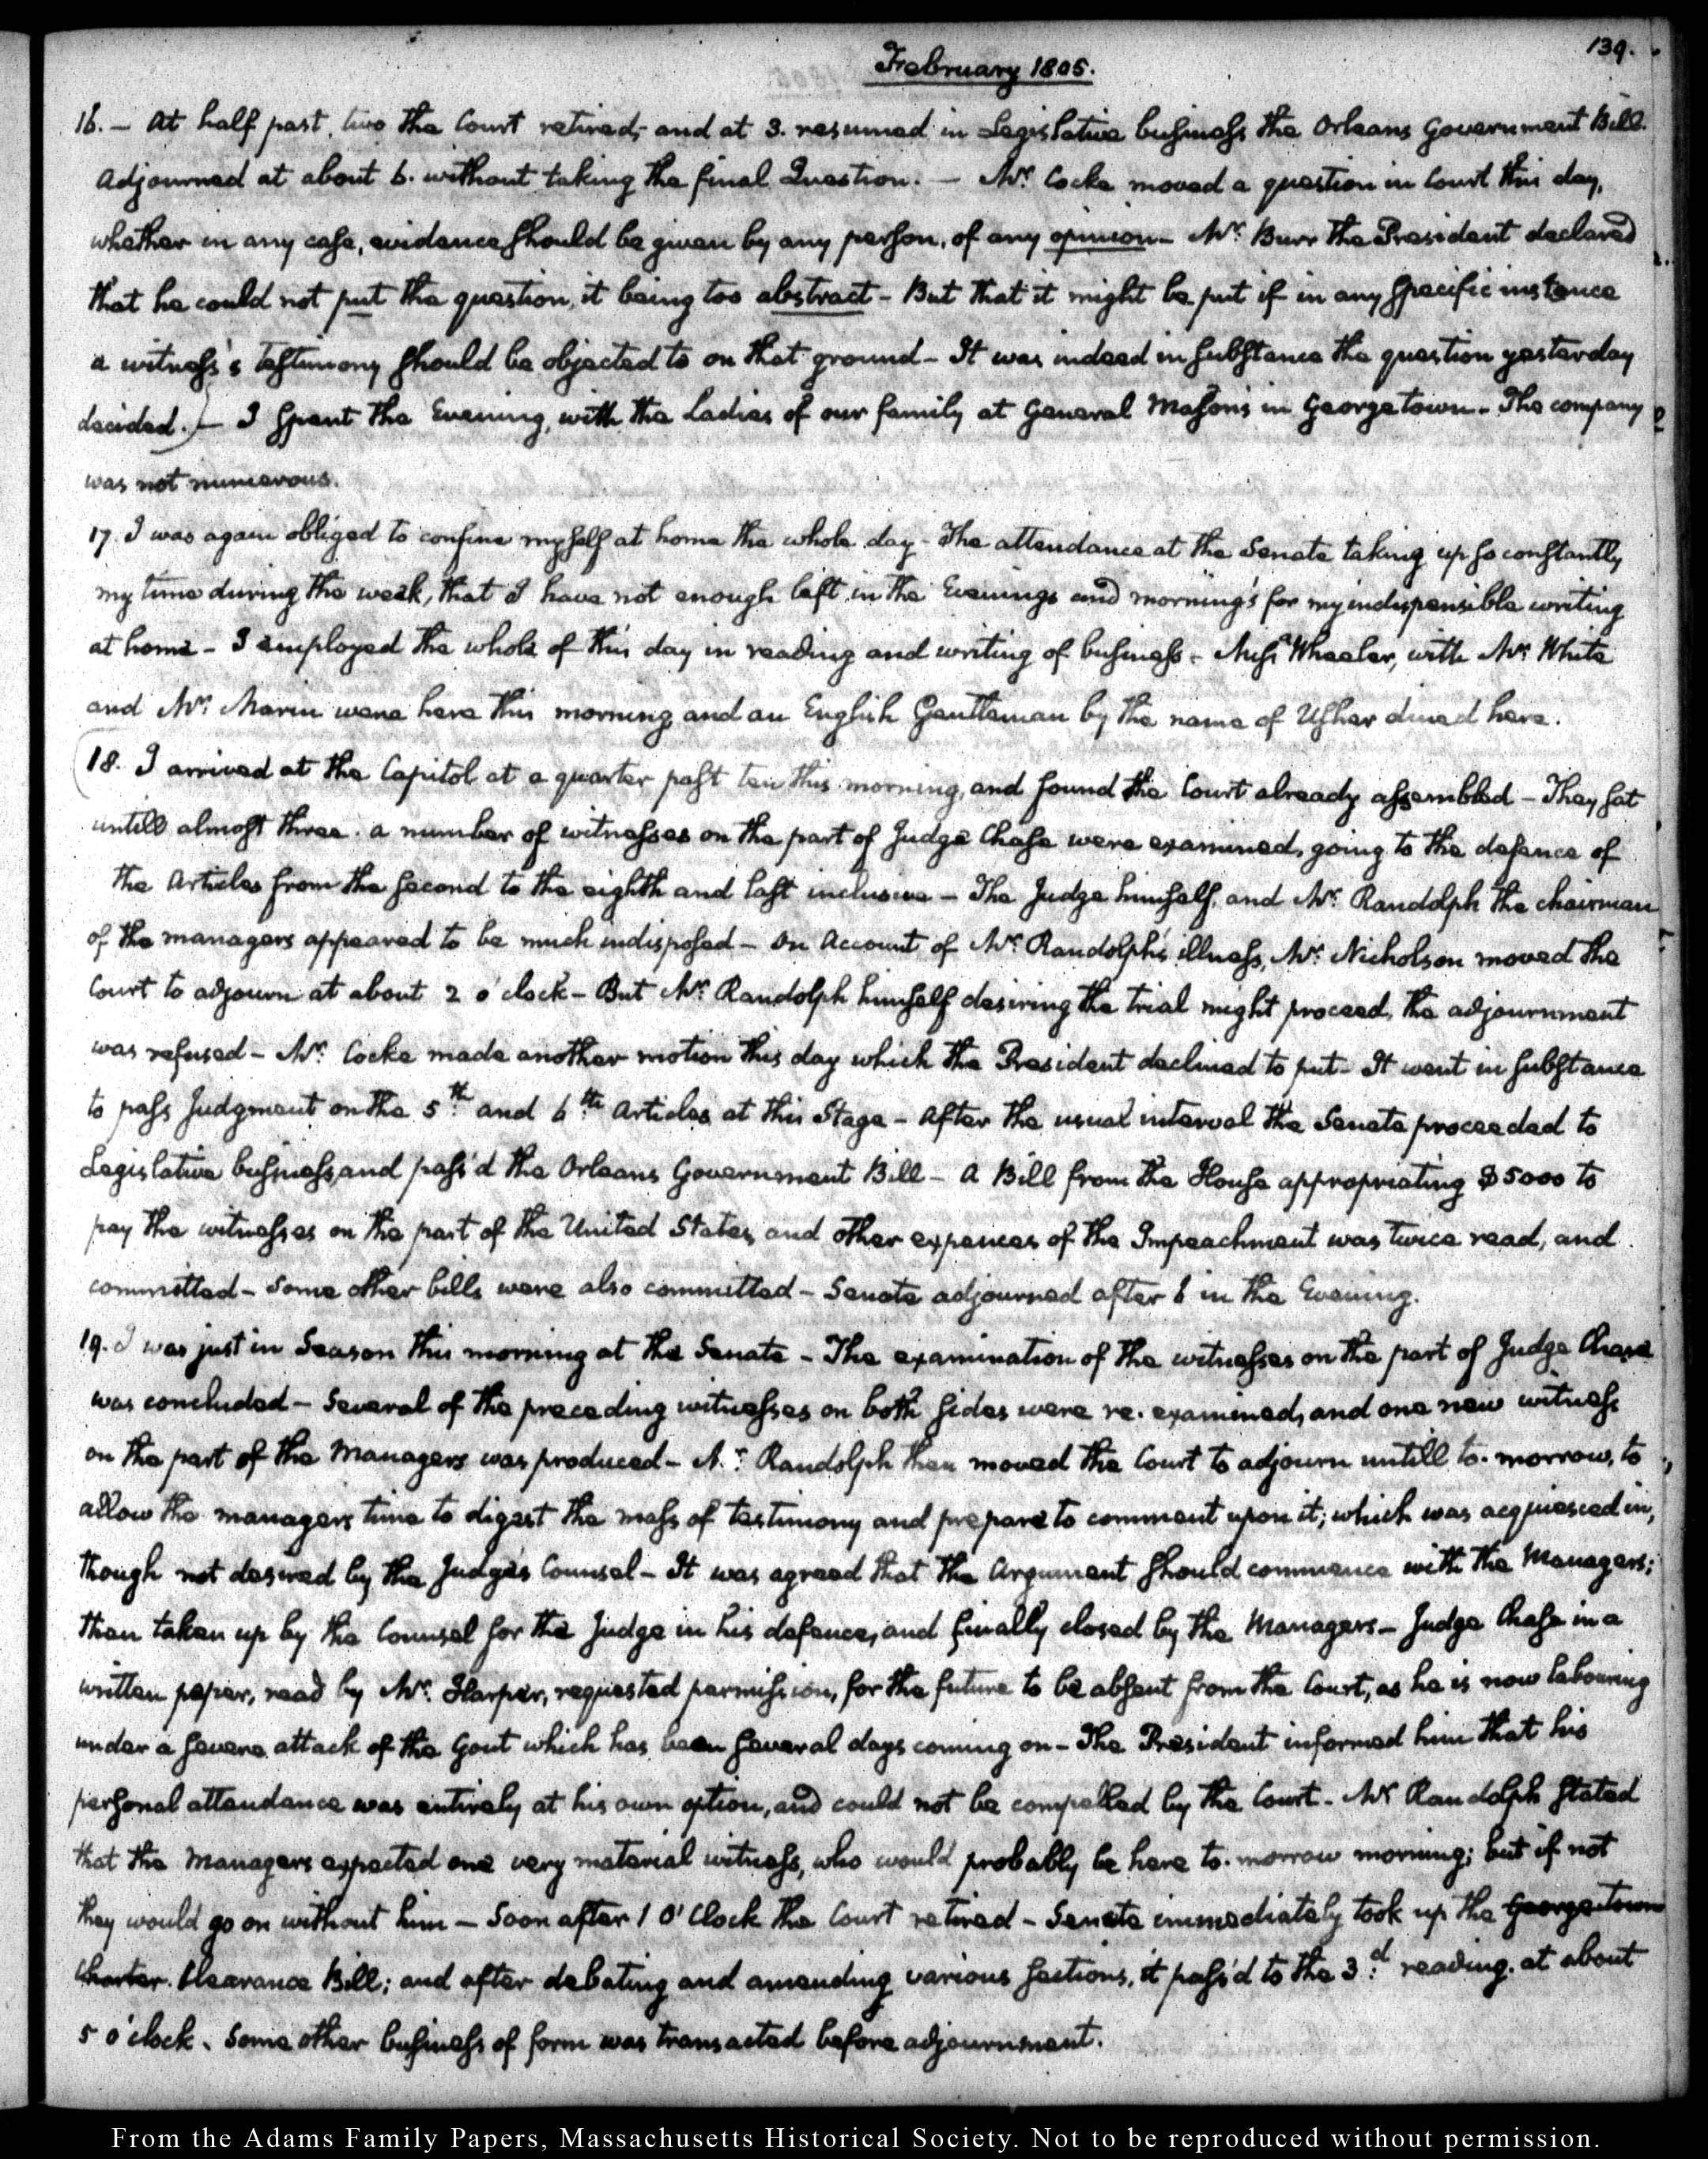 139.
February 1805.
16. – At half past two the Court retired, and at 3. resumed in Legislative business the Orleans Government Bill.
Adjourned at about 6. without taking the final Question. – Mr. Cocke moved a question in Court this day,
whether in any case, evidence should be given by any person, of any opinion – Mr. Burr the President declared
that he could not put the question, it being too abstract – But that it might be put if in any specific instance
a witness's testimony should be objected to on that ground – It was indeed in substance the question yesterday
decided.) – I spent the Evening, with the Ladies of our family at General Mason's in Georgetown – The company
was not numerous.
17. I was again obliged to confine myself at home the whole day – The attendance at the Senate taking up so constantly
my time during the week, that I have not enough left in the Evenings and morning's for my indispensible writing
at home – I employed the whole of this day in reading and writing of business – Wheeler, with Mr. White
and Mr. Marin were here this morning and an English Gentleman by the name of Usher dined here.
(18. I arrived at the Capitol at a quarter past ten this morning, and found the Court already assembled – They sat
untill almost three. a number of witnesses on the part of Judge Chase were examined, going to the defence of
the Articles from the second to the eighth and last inclusive – The Judge himself, and Mr. Randolph the chairman
of the managers appeared to be much indisposed – On Account of Mr. Randolph's illness, Mr. Nicholson moved the
Court to adjourn at about 2 o'clock – But Mr. Randolph himself desiring the trial might proceed, the adjournment
was refused – Mr. Cocke made another motion this day which the President declined to put – It went in substance
to pass Judgment on the 5th. and 6th. Articles at this Stage – After the usual interval the Senate proceeded to
Legislative business, and pass'd the Orleans Government Bill – A Bill from the House appropriating $5000 to
pay the witnesses on the part of the United States, and other expences of the Impeachment was twice read, and
committed – Some other bills were also committed – Senate adjourned after 6 in the Evening.
19. I was just in Season this morning at the Senate – The examination of the witnesses on the part of Judge Chase
was concluded – Several of the preceding witnesses on both sides were re-examined, and one new witness
on the part of the Managers was produced – Mr. Randolph then moved the Court to adjourn untill to-morrow, to
allow the managers time to digest the mass of testimony and prepare to comment upon it; which was acquiesced in,
though not desired by the Judge's Counsel – It was agreed that the Argument should commence with the Managers;
then taken up by the Counsel for the Judge in his defence, and finally closed by the Managers – Judge Chase in a
written paper, read by Mr. Harper, requested permission, for the future to be absent from the Court, as he is now labouring
under a severe attack of the Gout which has been several days coming on – The President informed him that his
personal attendance was entirely at his own option, and could not be compelled by the Court – Mr. Randolph stated
that the Managers expected one very material witness, who would probably be here to-morrow morning; but if not
they would go on without him – Soon after 1 O'Clock the Court retired – Senate immediately took up the Georgetown
charter. Clearance Bill; and after debating and amending various sections, it pass'd to the 3d. reading. at about
5 o'clock. Some other business of form was transacted before adjournment.
From the Adams Family Papers, Massachusetts Historical Society. Not to be reproduced without permission.